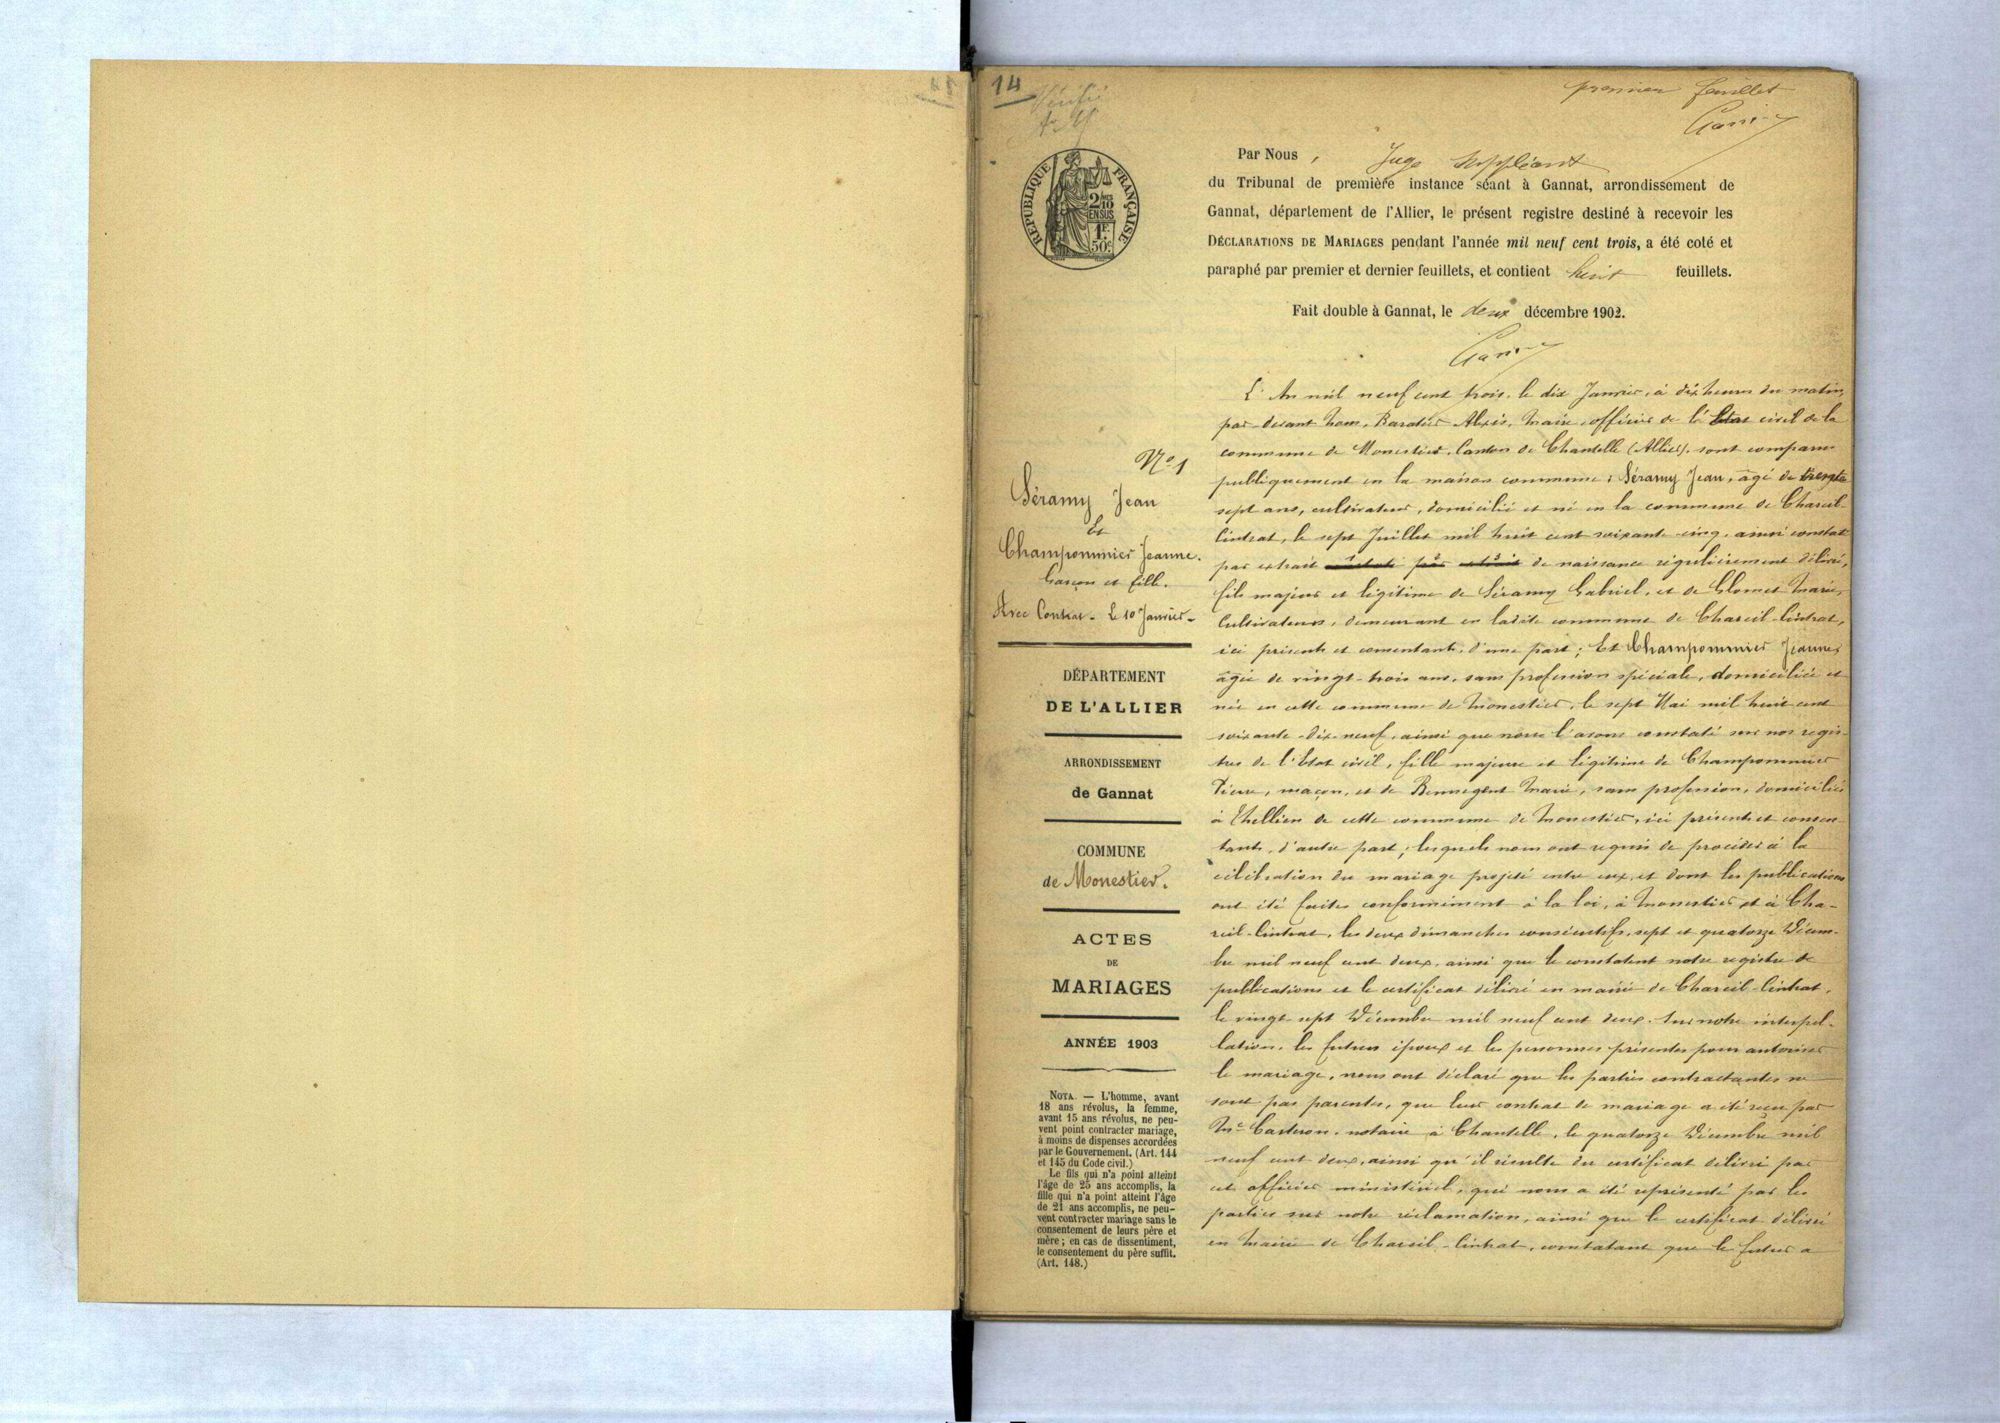 14
premier feuillet
RÉPUBLIQUE FRANÇAISE
2/10
EN SUS
1F
50c
Par Nous, Juge suppléant
du Tribunal de première instance séant à Gannat, arrondissement de
Gannat, département de l'Allier, le présent registre destiné à recevoir les
DÉCLARATIONS DE MARIAGES pendant l'année mil neuf cent trois, a été coté et
paraphé par premier et dernier feuillets, et contient huit feuillets.
Fait double à Gannat, le deux décembre 1902.
No 1
Séramy Jean
Et
Champommier Jeanne.
Garçon et fille.
Avec Contrat - Le 10 Janvier -
DÉPARTEMENT
DE L'ALLIER
ARRONDISSEMENT
de Gannat
COMMUNE
de Monestier.
ACTES
DE
MARIAGES
ANNÉE 1903
NOTA. — L'homme, avant
18 ans révolus, la femme,
avant 15 ans révolus, ne peu-
vent point contracter mariage,
à moins de dispenses accordées
par le Gouvernement. (Art. 144
et 145 du Code civil.)
Le fils qui n'a point atteint
l'âge de 25 ans accomplis, la
fille qui n'a point atteint l'âge
de 21 ans accomplis, ne peu-
vent contracter mariage sans le
consentement de leurs père et
mère ; en cas de dissentiment,
le consentement du père suffit.
(Art. 148.)
L'An mil neuf cent trois, le dix Janvier, à dix heures du matin,
par-devant nous, Baratier Alexis, Maire, officier de l'état civil de la
commune de Monestier, Canton de Chantelle (Allier), sont comparus
publiquement en la maison commune : Séramy Jean, âgé de trente
sept ans, cultivateur, domicilié et né en la commune de Chareil-
Cintrat, le sept Juillet mil huit cent soixante-cinq, ainsi constaté
par extrait de naissance régulièrement délivré,
fils majeur et légitime de Séramy Gabriel, et de Glomet Marie,
Cultivateurs, demeurant en ladite commune de Chareil-Cintrat,
ici présents et consentants, d'une part ; Et Champommier Jeanne,
âgée de vingt-trois ans, sans profession spéciale, domiciliée et
née en cette commune de Monestier, le sept Mai mil huit cent
soixante-dix-neuf, ainsi que nous l'avons constaté sur nos regis-
tres de l'Etat civil, fille majeure et légitime de Champommier
Pierre, maçon, et de Marie, sans profession, domiciliés
à de cette commune de Monestier, ici présents et consen-
tants, d'autre part ; lesquels nous ont requis de procéder à la
célébration du mariage projeté entre eux, et dont les publications
ont été faites conformément à la loi, à Monestier et à Cha-
reil-Cintrat, les deux dimanches consécutifs, sept et quatorze Décem-
bre mil neuf cent deux, ainsi que le constatent notre registre de
publications et le certificat délivré en mairie de Chareil-Cintrat,
le vingt-sept Décembre mil neuf cent deux. Sur notre interpel-
lation, les futurs époux et les personnes présentes pour autoriser
le mariage, nous ont déclaré que les parties contractantes ne
sont pas parentes, que leur contrat de mariage a été reçu par
Me Casteron, notaire à Chantelle, le quatorze Décembre mil
neuf cent deux, ainsi qu'il résulte du certificat délivré par
cet officier ministériel, qui nous a été représenté par les
parties sur notre réclamation, ainsi que le certificat délivré
en Mairie de Chareil-Cintrat, constatant que le futur a